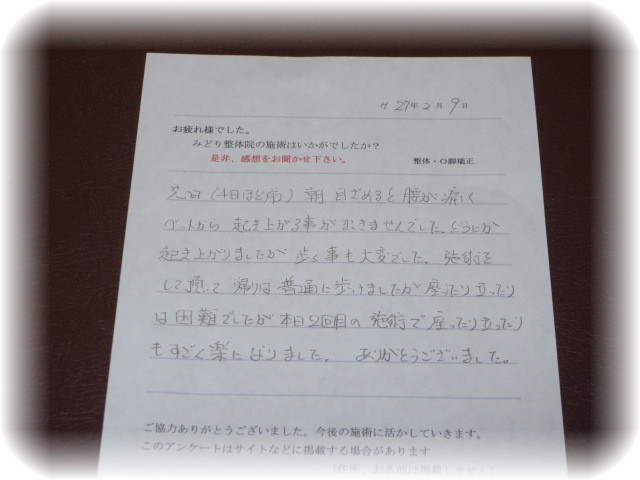 H 27年2月9日
お疲れ様でした。
みどり整体院の施術はいかがでしたか?
是非、感想をお聞かせ下さい。 整体・O脚矯正
先日(4日ほど前)朝 目ざめると腰が痛く
ベットから起き上がる事が出きませんでした。どうにか
起き上がりましたが 歩く事も大変でした。施術を
して頂いて 帰りは普通に歩けましたが座ったり立ったり
は困難でしたが本日2回目の施術で座ったり立ったり
もすごく楽になりました。 ありがとうございました。
ご協力ありがとうございました。今後の施術に活かしていきます。
このアンケートはサイトなどに掲載する場合があります
(住所、お名前は掲載しません)